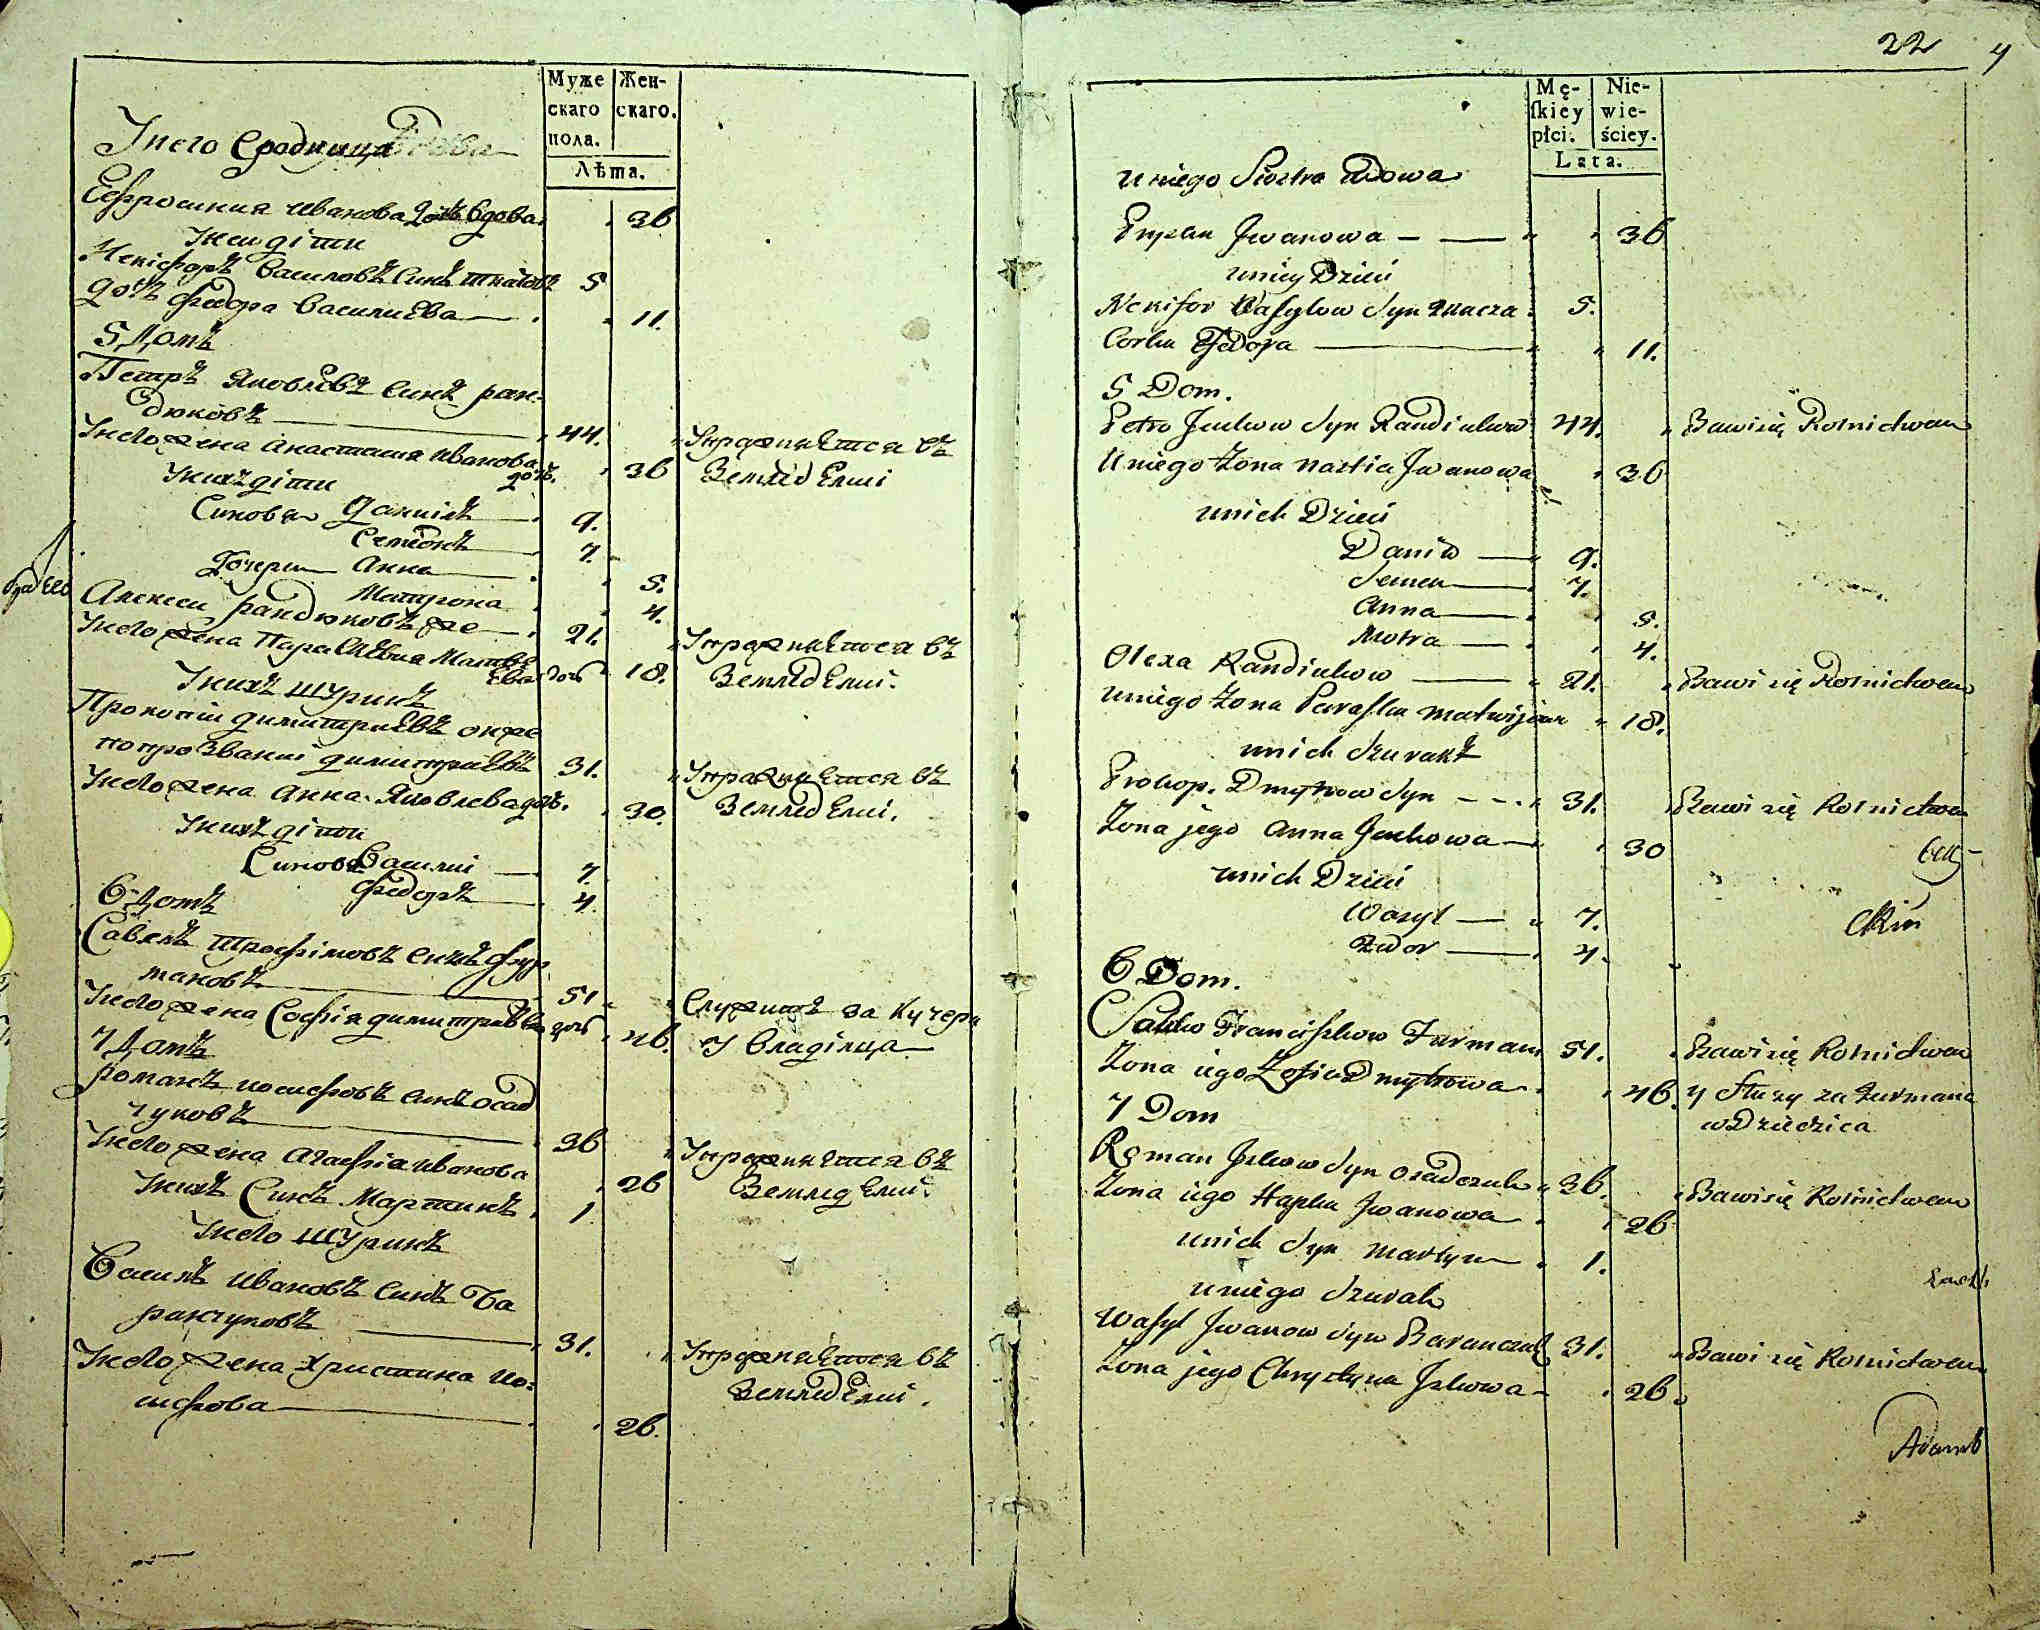 Муже
скаго
пола.
Жен-
скаго.
Лѣта.
Унего Сродница
Ефросиния Иванова дочь вдова 36
Унеи дѣти
Никифоръ Василовъ Синъ ткачовъ 5
дочь Федора Василиева 11.
5 Домъ
Петръ Яковлевъ Синъ ран-
дюковъ 44. Упражняется въ
Унего жена Анастасия Иванова дочь. 36 Земледелии
Унихъ дѣти
Синовья Даниилъ 9.
Семионъ 7.
Дочери Анна 5.
Матрона 4.
Брат его
Алексеи рандюковъ же 21. Упражняется въ
Унего жена Параскевия Матвѣева дочь 18. Земледелии.
Унихъ шуринъ
Прокопии димитриевъ онже
попрозванию димитриевъ 31. Упражняется въ
Унего жена Анна Яковлева дочь. 30. Земледелии.
Унихъ дѣти
Синовья Василии 7.
Федоръ 4.
6 Домъ
Савелъ Трофимовъ Синъ фур
мановъ 51 Служитъ за Кучера
Унего жена София димитриева дочь 46. У владѣлца
7 Домъ
Романъ иосифовъ Синъ осад
чуковъ 36 Упражняется въ
Унего жена Агафия Иванова 26 Земледелии.
Унихъ Синъ Мартинъ 1
Унего шуринъ
Василъ Ивановъ Синъ Ба
ранчуковъ 31. Упражняется въ
Унего жена Христина ио- Земледелии.
сифова 26.
22 4
Mę-
ſkiey
płci.
Nie-
wie-
ściey.
Lata.
u niego Siostra Wdowa
Iwanowa 36
uniey Dzieci
Nekifor Wasylow Syn Tkacza 5.
Corka Fedora 11.
5 Dom.
Petro Jackow Syn Randiukow 44. Bawi się Rolnictwem
U niego Zona Nastia Iwanowa 36
unich Dzieci
Daniło 9.
Semen 7.
Anna 5.
Motra 4.
Olexa Randiukow 21. Bawi się Rolnictwem
uniego Zona Paraska Matwijowa 18.
unich Szurak
Prokop. Dmytrow Syn 31. Bawi się Rolnictwem
Zona jego Anna Jackowa 30
unich Dzieci
Wasyl 7.
Fedor 4.
6 Dom.
Sawko Franciszkow Furman 51. Bawi się Rolnictwem
Zona iego Zofia Dmytrowa 46. y Służy za Furmana
w Dziedzica
7 Dom
Roman Jskow Syn Osadczuk 36. Bawi się Rolnictwem
Zona iego Hapka Iwanowa 26
unich Syn Martyn 1.
uniego Szurak
Wasyl Iwanow Syn Baranczuk 31. Bawi się Rolnictwem
Zona jego Chrystyna Jskowa 26.
Adamb